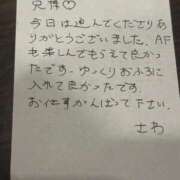 兄様♡
今日は遊んでくださり
ありがとうございました。AF
も楽しんでもらえて良かっ
たです。ゆっくりおふろに
入れて良かったです。
お仕事がんばって下さい。